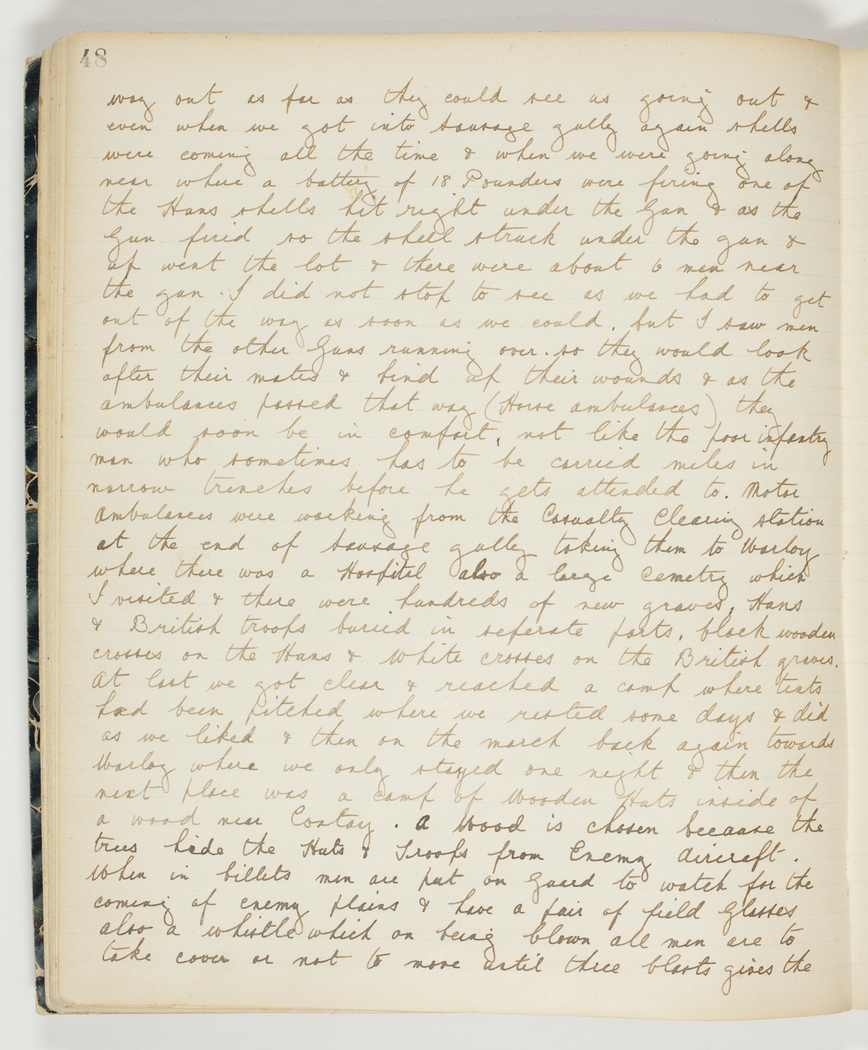 48
way out as far as they could see us going out &
even when we got into Sausage gully again shells
were coming all the time & when we were going along
near where a battery of 18 Pounders were firing one of
the Huns shells hit right under the Gun & as the
Gun fired so the shell struck under the gun &
up went the lot & there were about 6 men near
the gun. I did not stop to see as we had to get
out of the way as soon as we could, but I saw men
from the other Guns running over. so they would look
after their mates & bind up their wounds & as the
ambulances passed that way (Horse ambulances) they
would soon be in comfort, not like the poor infantry
man who sometimes has to be carried miles in
narrow trenches before he gets attended to. Motor
Ambulances were working from the Casualty Clearing station
at the end of Sausage gully taking them to Warloy
where there was a Hospital also a large Cemetry which
I visited & there were hundreds of new graves, Huns
& British troops buried in seperate parts, black wooden
crosses on the Huns & White crosses on the British graves.
At last we got clear & reached a camp where tents
had been pitched where we rested some days & did
as we liked & then on the march back again towards
Warloy where we only stayed one night & then the
next place was a camp of Wooden Huts inside of
a wood near Contay. A Wood is chosen because the
trees hide the Huts & Troops from Enemy aircraft.
When in billets men are put on Guard to watch for the
coming of enemy plains & have a pair of field Glasses
also a whistle which on being blown all men are to
take cover or not to move until three blasts gives the